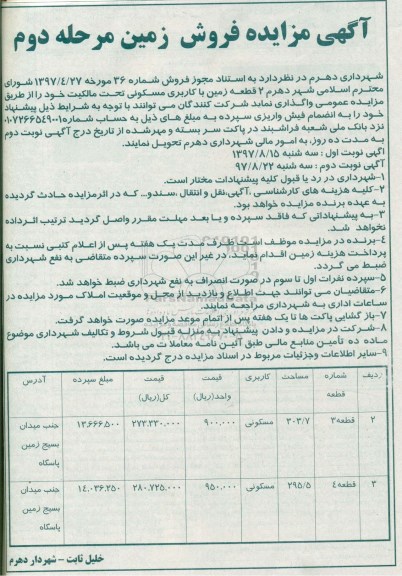 آگهی مزایده فروش زمین مرحله دوم
شهرداری دهرم در نظردارد به استناد مجوز فروش شماره ۳۶ مورخه ۱۳۹۷/۴/۲۷ شورای
محترم اسلامی شهر دهرم ۲ قطعه زمین با کاربری مسکونی تحت مالکیت خود را از طریق
مزایده عمومی واگذاری نماید شرکت کنندگان می توانند با توجه به شرایط ذیل پیشنهاد
خود را به انضمام فیش واریزی سپرده به مبلغ های ذیل به حساب شماره۰۱۰۷۲۶۶۵۴۹۰۰۱
نزد بانک ملی شعبه فراشبند در پاکت سر بسته و مهرشده از تاریخ درج آگهی نوبت دوم
به مدت ده روز، به امور مالی شهرداری دهرم تحویل نمایند.
آگهی نوبت اول : سه شنبه ۱۳۹۷/۸/۱۵
آگهی نوبت دوم : سه شنبه ۹۷/۸/۲۲
۱-شهرداری در رد یا قبول کلیه پیشنهادات مختار است.
۲-کلیه هزینه های کارشناسی ،آگهی،نقل و انتقال ،سندو... که در اثرمزایده حادث گردیده
به عهده برنده مزایده خواهد بود.
۳-به پیشنهاداتی که فاقد سپرده و یا بعد مهلت مقرر واصل گردید ترتیب اثرداده
نخواهد شد.
۴-برنده در مزایده موظف است ظرف مدت یک هفته پس از اعلام کتبی نسبت به
پرداخت هزینه زمین اقدام نماید. در غیر این صورت سپرده متقاضی به نفع شهرداری
ضبط می گردد.
۵-سپرده نفرات اول تا سوم در صورت انصراف به نفع شهرداری ضبط خواهد شد.
۶-متقاضیان می توانند جهت اطلاع و بازدید از محل و موقعیت املاک مورد مزایده در
ساعات اداری به شهرداری مراجعه نمایند.
۷-باز گشایی پاکت ها تا یک هفته پس از اتمام موعد مزایده صورت خواهد گرفت.
۸-شرکت در مزایده و دادن پیشنهاد به منزله قبول شروط و تکالیف شهرداری موضوع
ماده ده تأمین منابع مالی طبق آئین نامه معاملات می باشد.
۹-سایر اطلاعات وجزئیات مربوط در اسناد مزایده درج گردیده است.
ردیف شماره قطعه مساحت کاربری قیمت واحد(ریال) قیمت کل(ریال) مبلغ سپرده آدرس
۲ قطعه۳ ۳۰۳/۷ مسکونی ۹۰۰.۰۰۰ ۲۷۳.۳۳۰.۰۰۰ ۱۳.۶۶۶.۵۰۰ جنب میدان بسیج زمین پاسگاه
۳ قطعه۴ ۲۹۵/۵ مسکونی ۹۵۰.۰۰۰ ۲۸۰.۷۲۵.۰۰۰ ۱۴.۰۳۶.۲۵۰ جنب میدان بسیج زمین پاسگاه
خلیل ثابت - شهردار دهرم